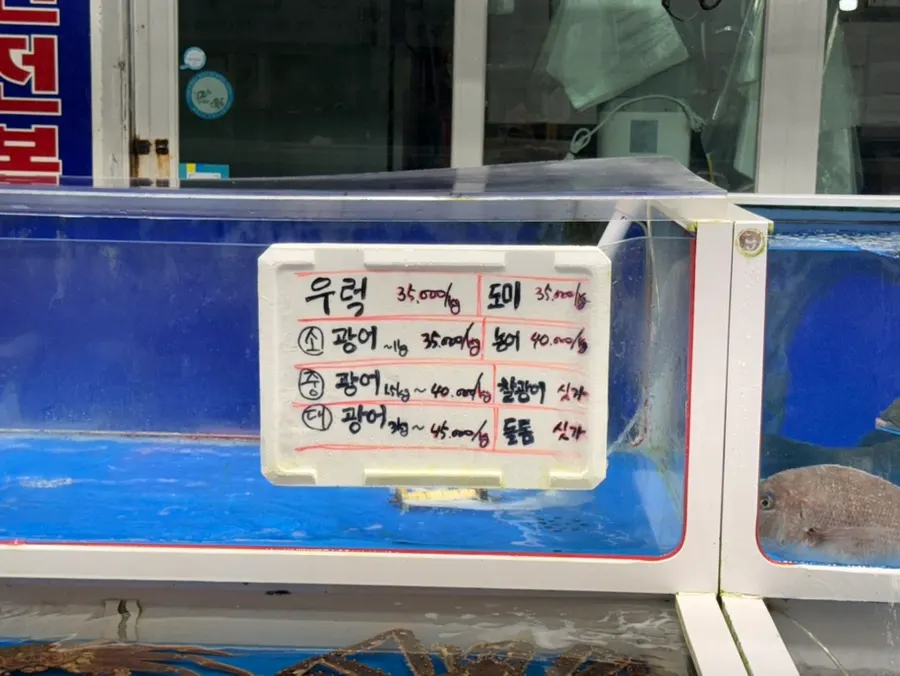 우럭 35.000/kg 도미 35.000/kg
소 광어 ~1kg 35.000/kg 농어 40.000/kg
중 광어 1.5kg~ 40.000/kg 찰광어 싯가
대 광어 3kg~ 45.000/kg 돌돔 싯가